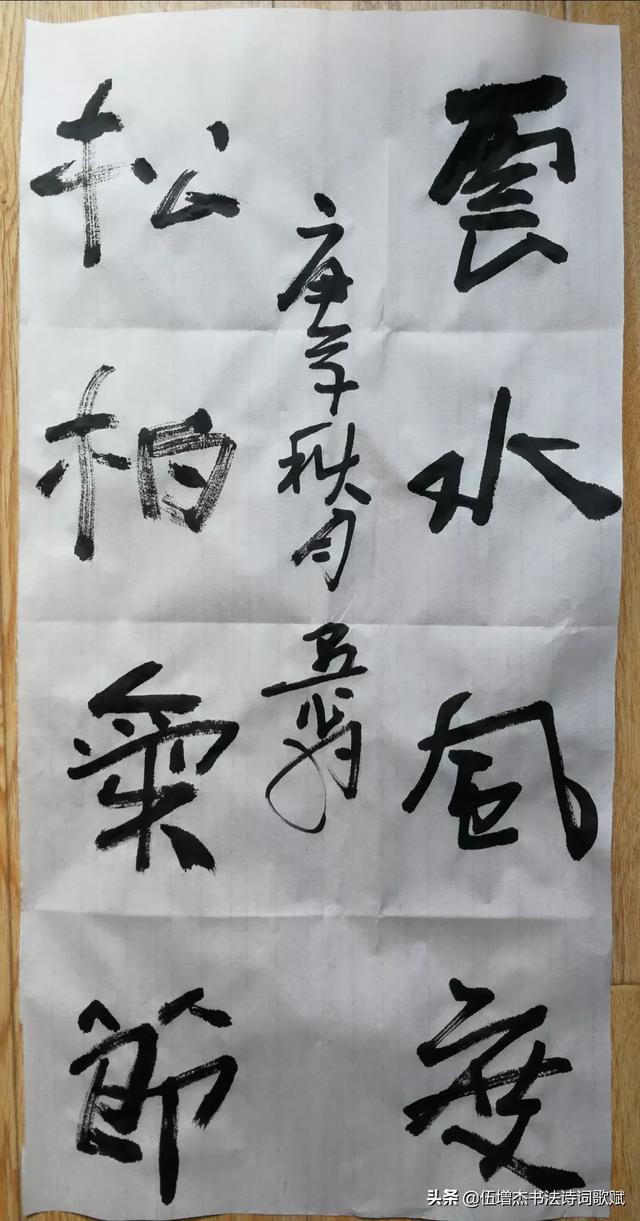 雲水風度
庚子秋月
松柏氣節
头条 @伍增杰书法诗词歌赋